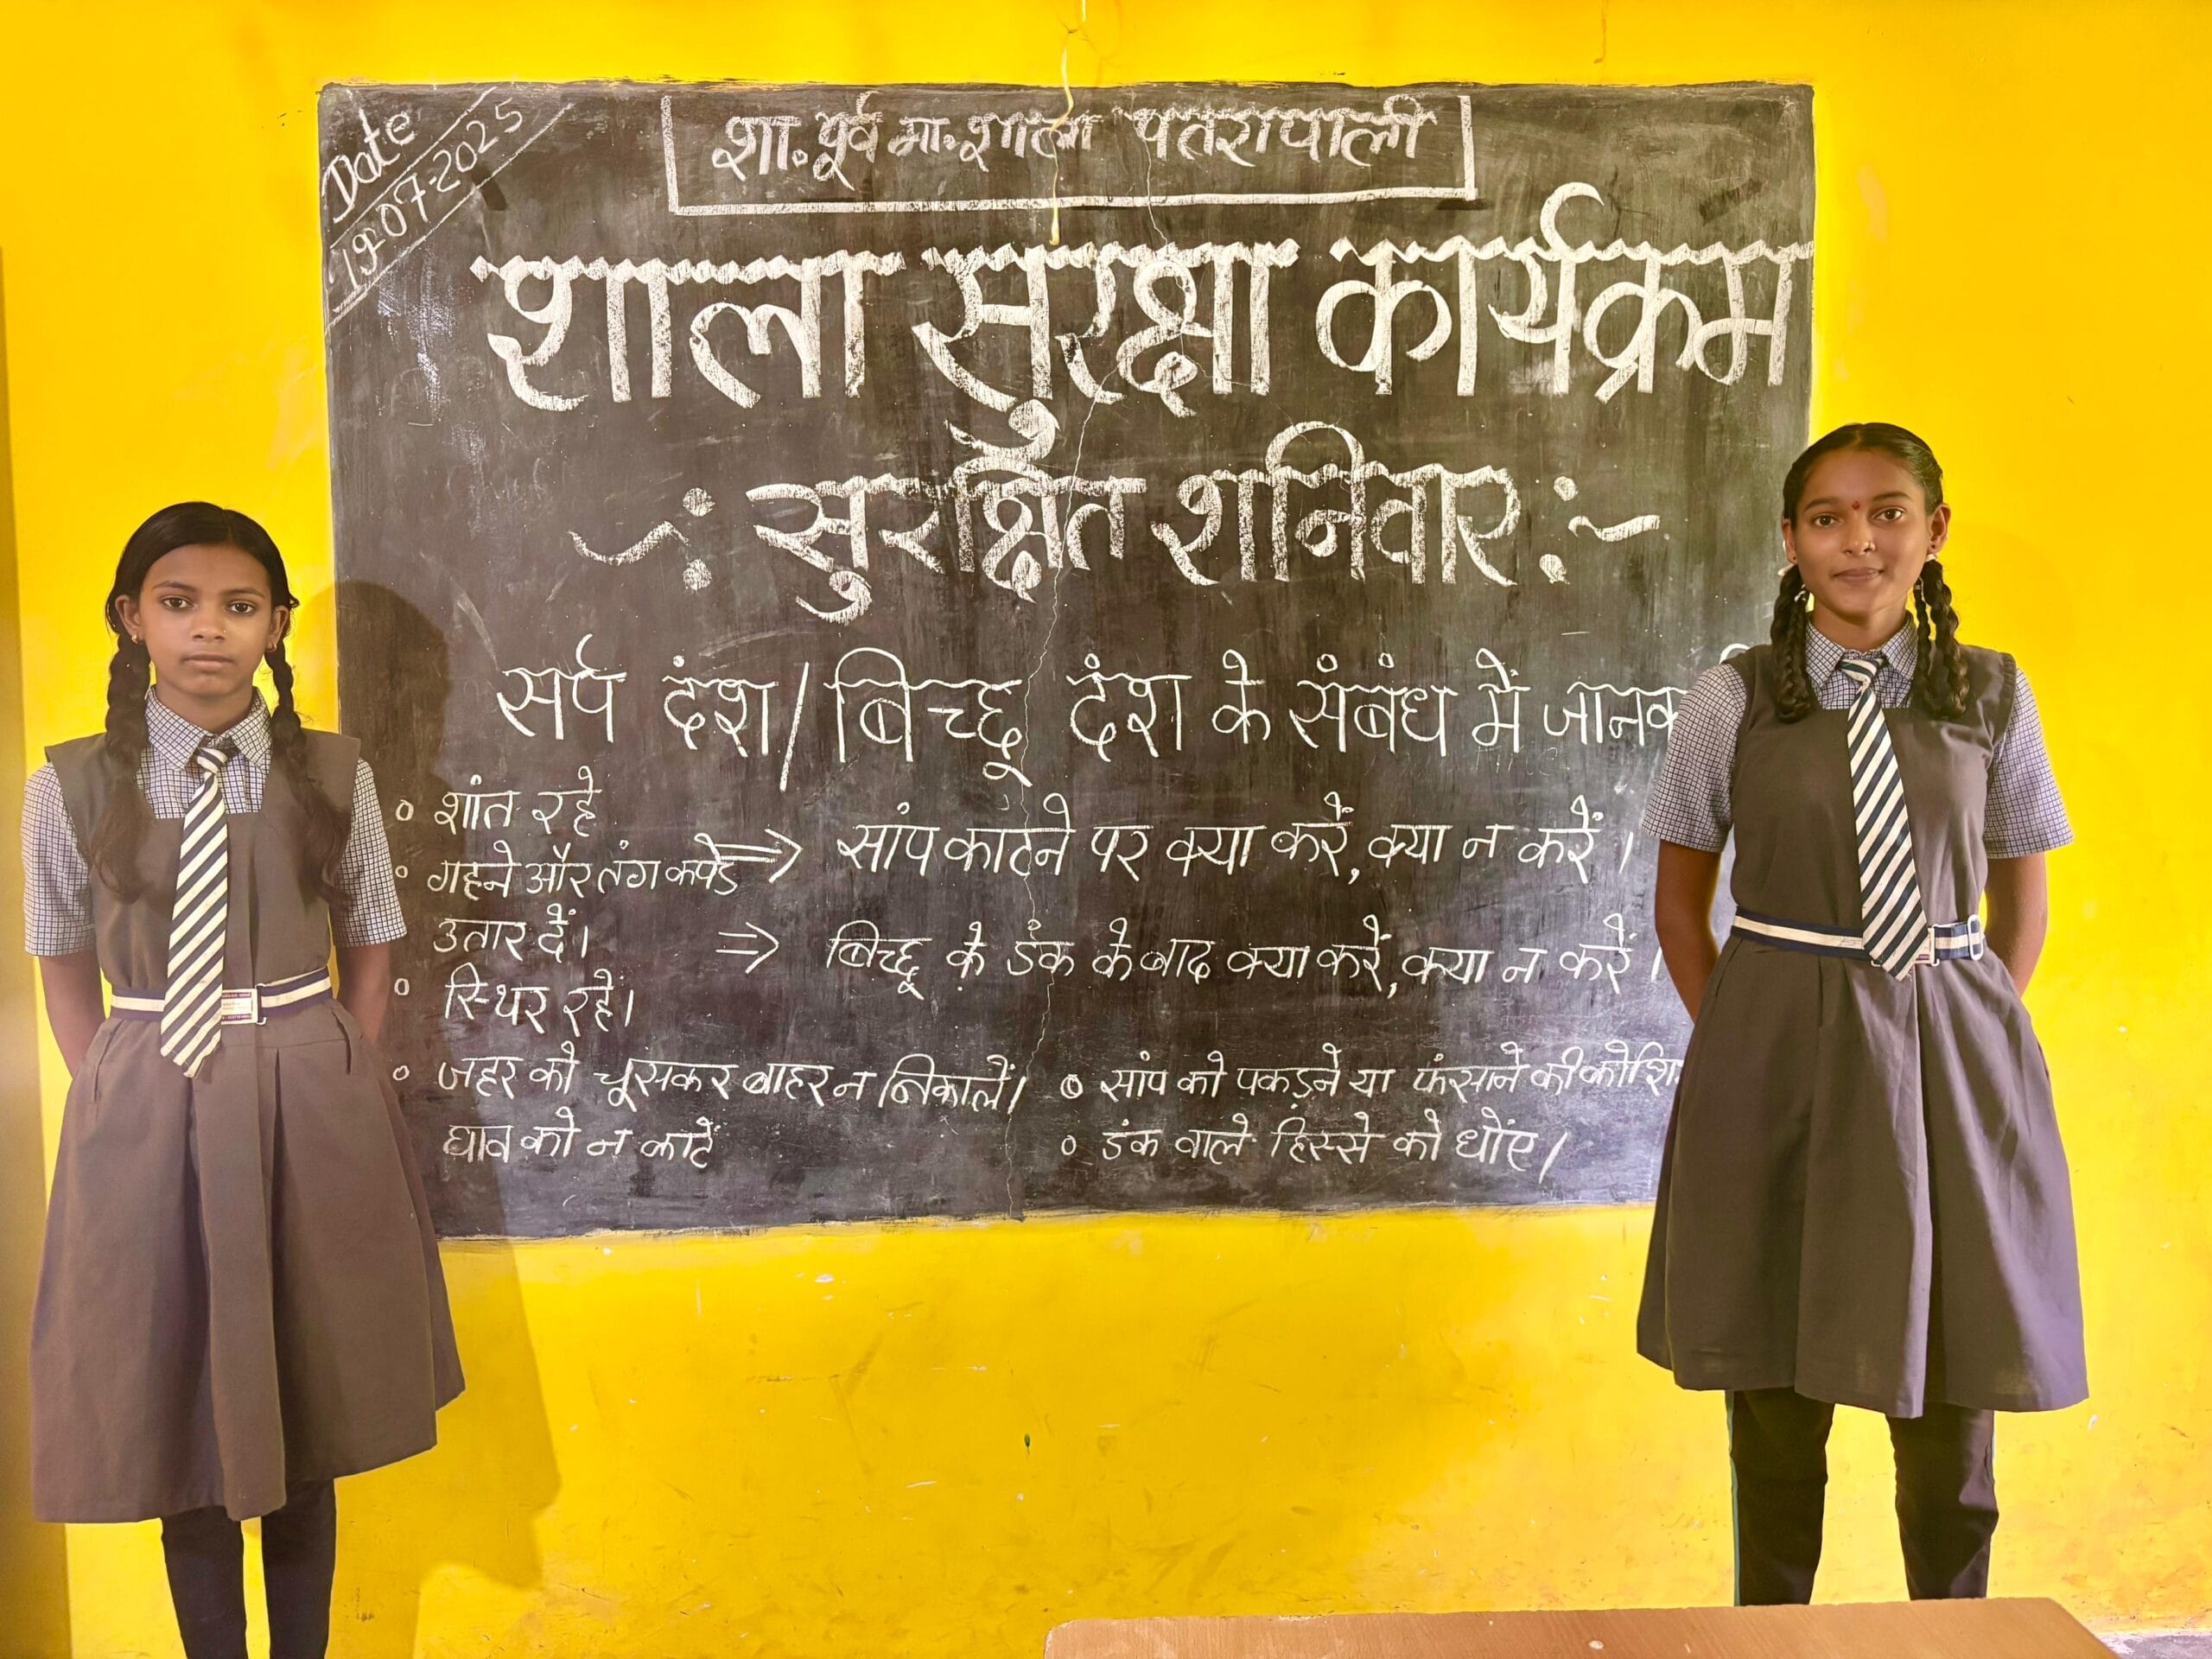 Date
19-07-2025
शा. पूर्व मा. शाला पतरापाली
शाला सुरक्षा कार्यक्रम
~: सुरक्षित शनिवार :~
सर्प दंश / बिच्छू दंश के संबंध में
० शांत रहे
० गहने और तंग कपड़े
उतार दें।
० स्थिर रहें।
⇒ सांप काटने पर क्या करें, क्या न करें।
⇒ बिच्छू के डंक के बाद क्या करें, क्या न करें।
० जहर को चूसकर बाहर न निकालें।
घाव को न काटें
० सांप को पकड़ने या फंसाने की
० डंक वाले हिस्से को धोंए।